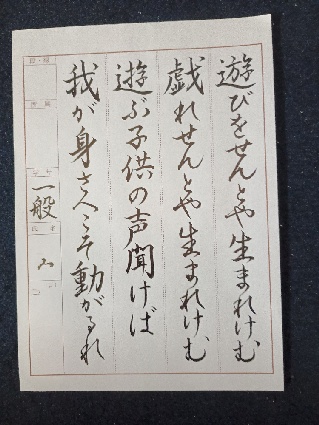 遊びをせんとや生まれけむ
戯れせんとや生まれけむ
遊ぶ子供の声聞けば
我が身さへこそ動がるれ
一般